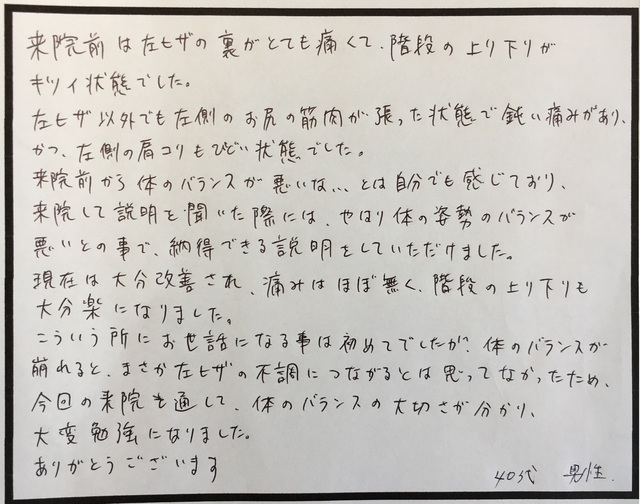 来院前は左ヒザの裏がとても痛くて、階段の上り下りが
キツイ状態でした。
左ヒザ以外でも左側のお尻の筋肉が張った状態で鈍い痛みがあり、
かつ、左側の肩コリもひどい状態でした。
来院前から体のバランスが悪いな、、とは自分でも感じており、
来院して説明を聞いた際には、やはり体の姿勢のバランスが
悪いとの事で、納得できる説明をしていただけました。
現在は大分改善され、痛みはほぼ無く、階段の上り下りも
大分楽になりました。
こういう所にお世話になる事は初めてでしたが、体のバランスが
崩れると、まさか左ヒザの不調につながるとは思ってなかったため、
今回の来院を通して、体のバランスの大切さが分かり、
大変勉強になりました。
ありがとうございます
40代 男性.